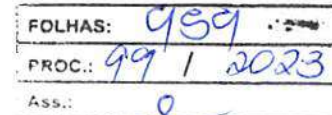 FOLHAS: 959
PROC.: 99 / 2023
Ass.: